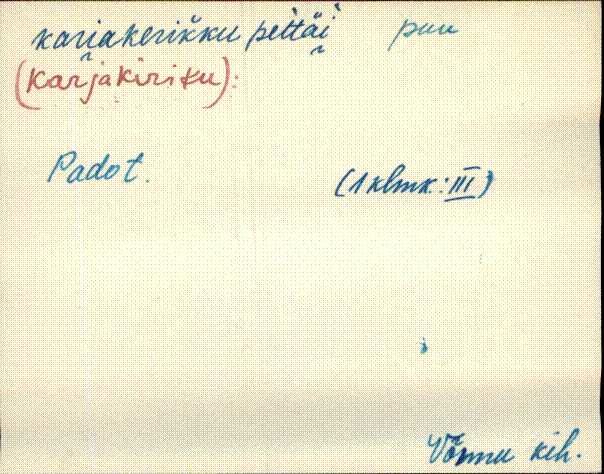 kari̯akerikku pettäi̯ puu
(Karjakiriku):
Padot. (1 klmk: III)
Võnnu kih.